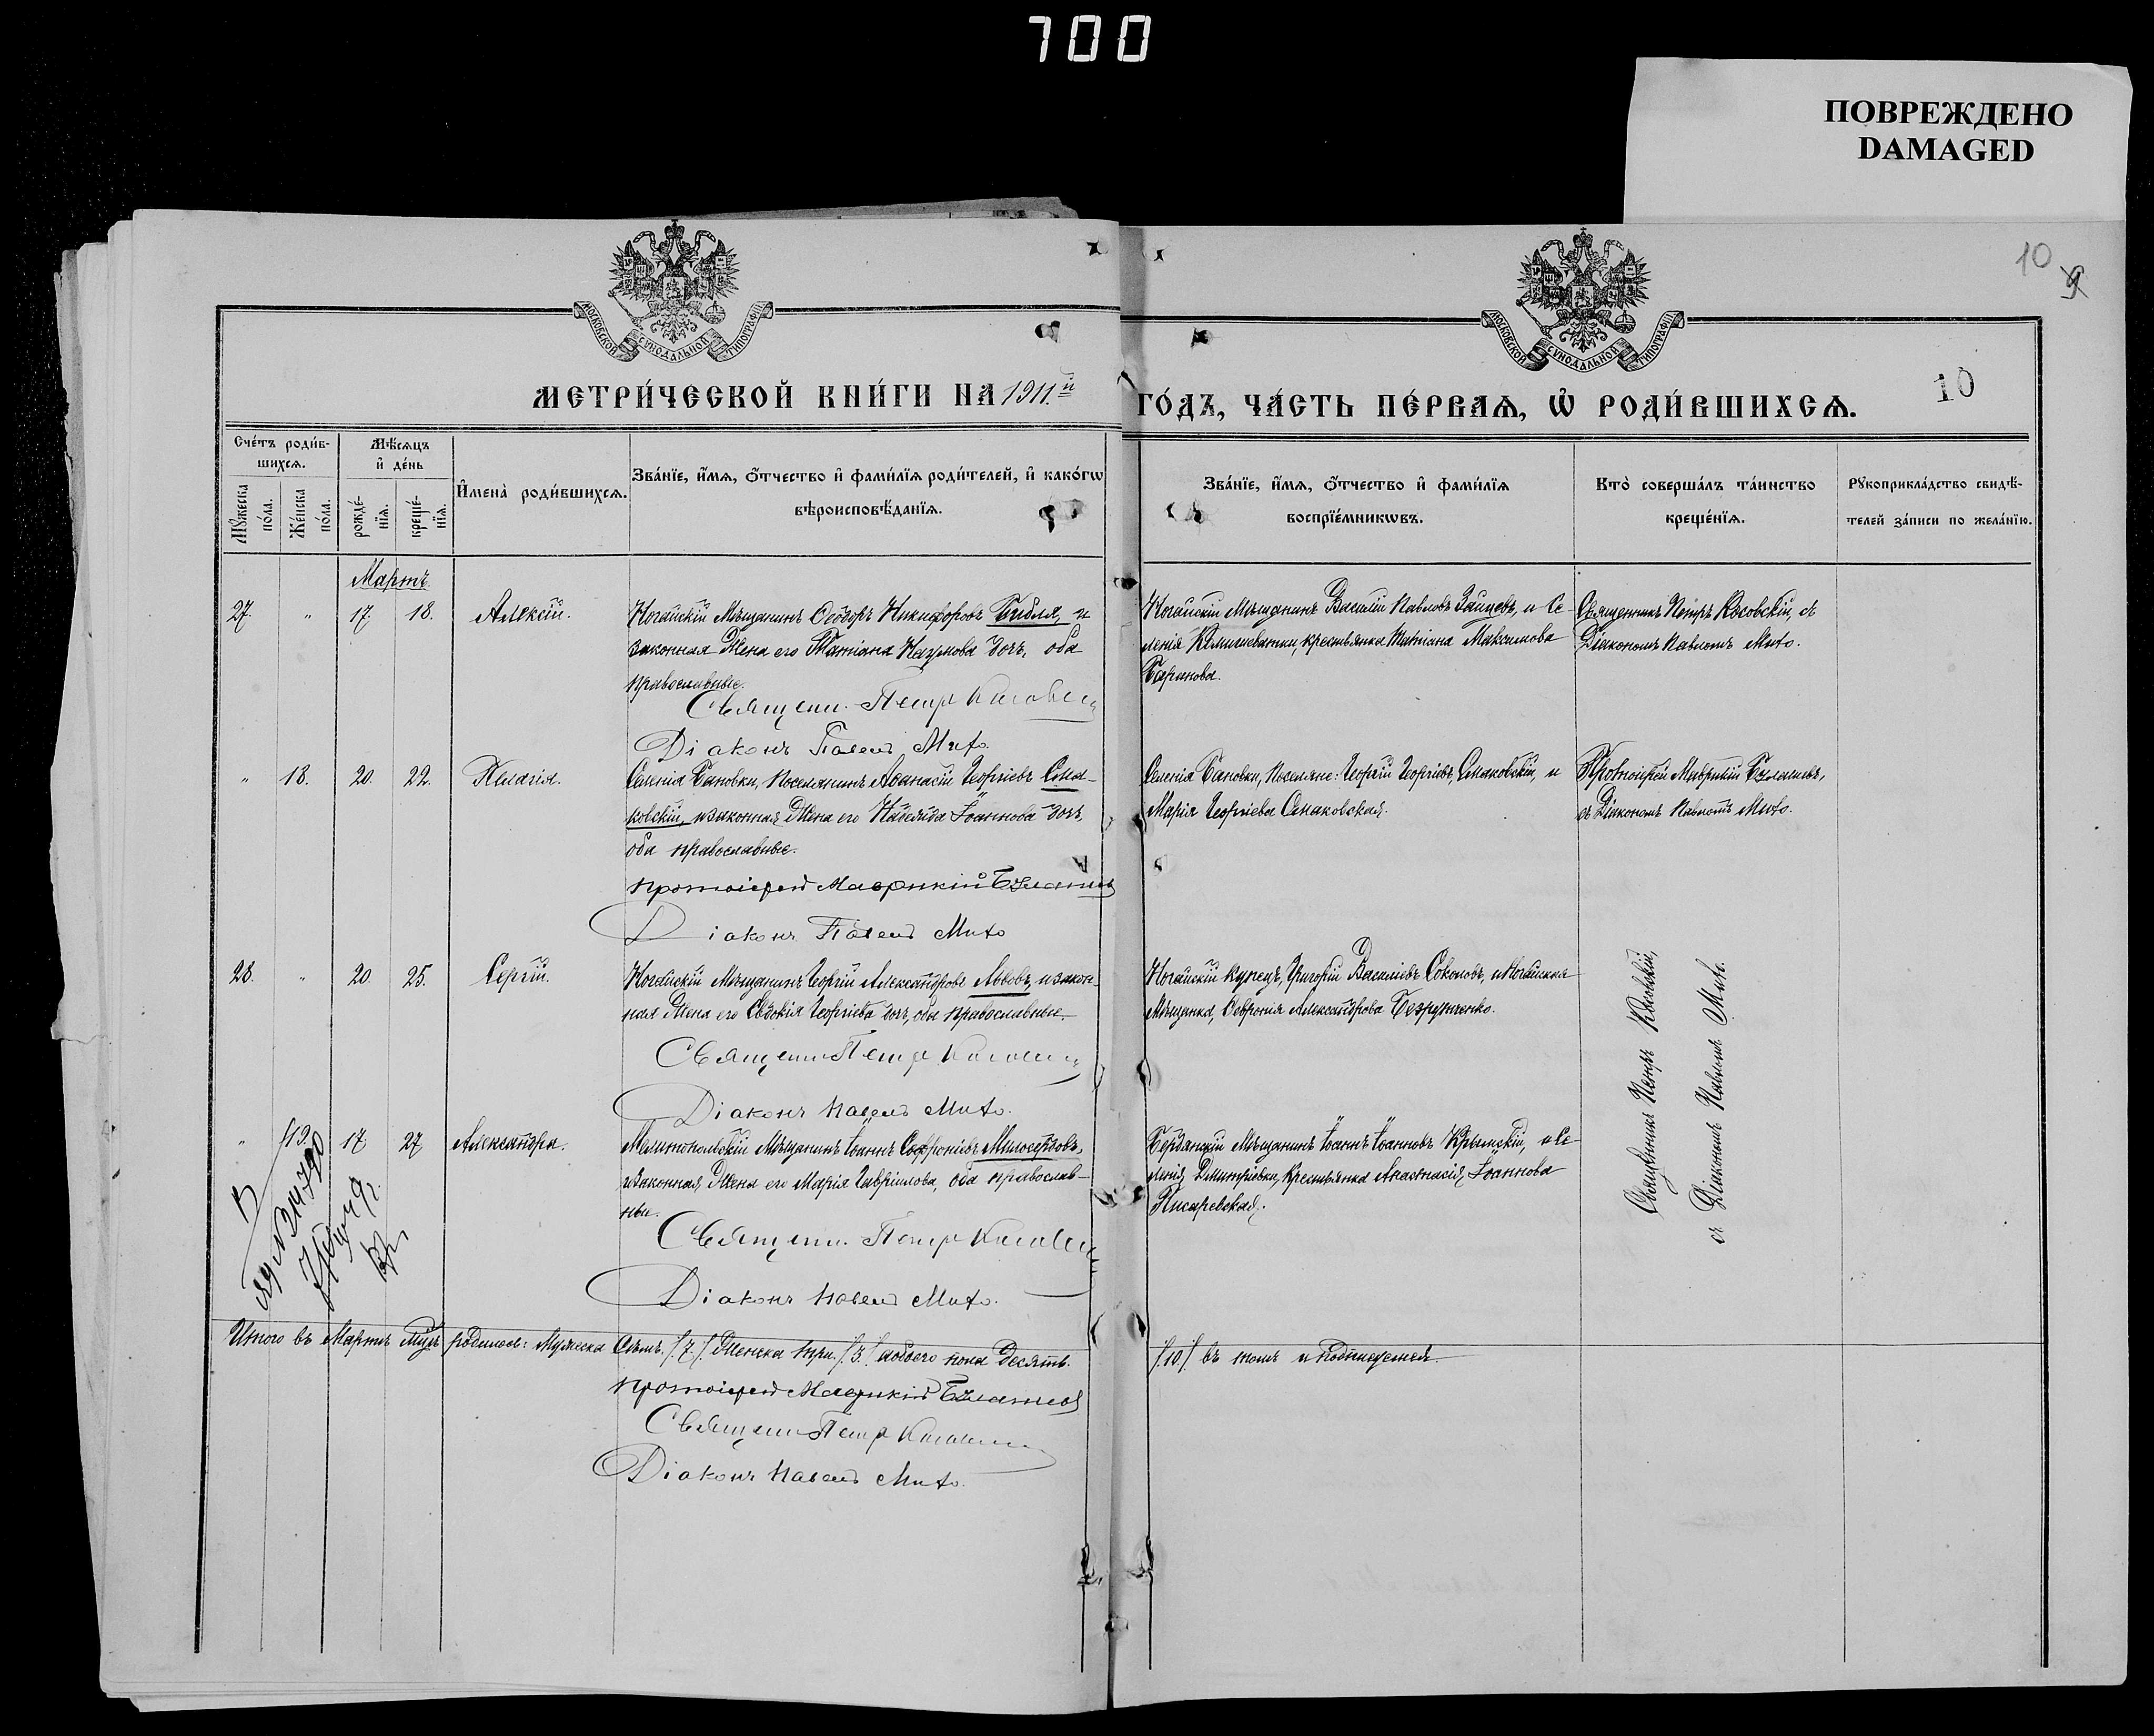 700
ПОВРЕЖДЕНО
DAMAGED
10
9
МОСКОВСКОЙ СѴНОДАЛЬНОЙ ТИПОГРАФІИ
МОСКОВСКОЙ СѴНОДАЛЬНОЙ ТИПОГРАФІИ
МЕТРИ́ЧЕСКОЙ КНИ́ГИ НА 1911й
ГО́ДЪ, ЧА́СТЬ ПЕ́РВАѦ, Ѽ РОДИ́ВШИХСѦ.
10
Сче́тъ роди́в-
шихсѧ.
Мѣ́сѧцъ
и҆ де́нь
И҆мена̀ роди́вшихсѧ.
Зва́нїе, и҆́мѧ, ѻ҆́тчество и҆ фами́лїѧ роди́телей, и҆ како́гѡ
вѣроисповѣ́данїѧ.
Мꙋ́жеска по́ла.
Же́нска по́ла.
рожде́-нїѧ.
креще́-нїѧ.
Зва́нїе, и҆́мѧ, ѻ҆́тчество и҆ фами́лїѧ
воспрїе́мникѡвъ.
Кто̀ соверша́лъ та́инство
креще́нїѧ.
Рꙋкоприкла́дство свидѣ́-
телей за́писи по жела́нїю.
Мартъ.
27. " 17. 18. Алексій.
Ногайскій Мѣщанинъ Ѳеодоръ Никифоровъ Библя, и
законная Жена его Татіана Наумова дочь, оба
православные.
Священ. Петръ
Діаконъ Павелъ Михо.
Ногайскій Мѣщанинъ Василій Павловъ Зайцевъ, и Се-
ленія крестьянка Татіана Максимова
Баринова.
Священникъ Петръ съ
Діакономъ Павломъ Михо.
" 18. 20. 22. Пелагія.
Селенія Бановки, Поселянинъ Аѳанасій Георгіевъ Сма-
ковскій, и законная Жена его Надежда Іоаннова дочь
оба православные.
Протоіерей Маврикій
Діаконъ Павелъ Михо
Селенія Бановки, Поселяне: Георгій Георгіевъ Смаковскій, и
Марія Георгіева Смаковская.
Протоіерей Маврикій
съ Діакономъ Павломъ Михо.
28. " 20. 25. Сергій.
Ногайскій Мѣщанинъ Георгій Александровъ Львовъ, и закон-
ная Жена его Евдокія Георгіева дочь, оба православные.
Священ. Петръ
Діаконъ Павелъ Михо.
Ногайскій Купецъ, Григорій Васильевъ Соколовъ, и Ногайская
Мѣщанка, Ѳевронія Александрова
Священникъ Петръ
съ Діакономъ Павломъ Михо.
" 19. 17 27 Александра.
Мелитопольскій Мѣщанинъ Іоаннъ Софроніевъ Милосердовъ,
и законная Жена его Марія Гавріилова, оба православ-
ные.
Священ. Петръ
Діаконъ Павелъ Михо.
Бердянскій Мѣщанинъ Іоаннъ Іоанновъ Крымскій, и Се-
ленія Дмитріевки, Крестьянка Анастасія Іоаннова
Писаревская.
Итого въ Мартѣ м-цѣ родилось: Мужеска Семь /.7./ Женска три /.3./ а обоего пола Десять.
/.10./ въ томъ и подписуемся.
Протоіерей Маврикій
Священ. Петръ
Діаконъ Павелъ Михо.